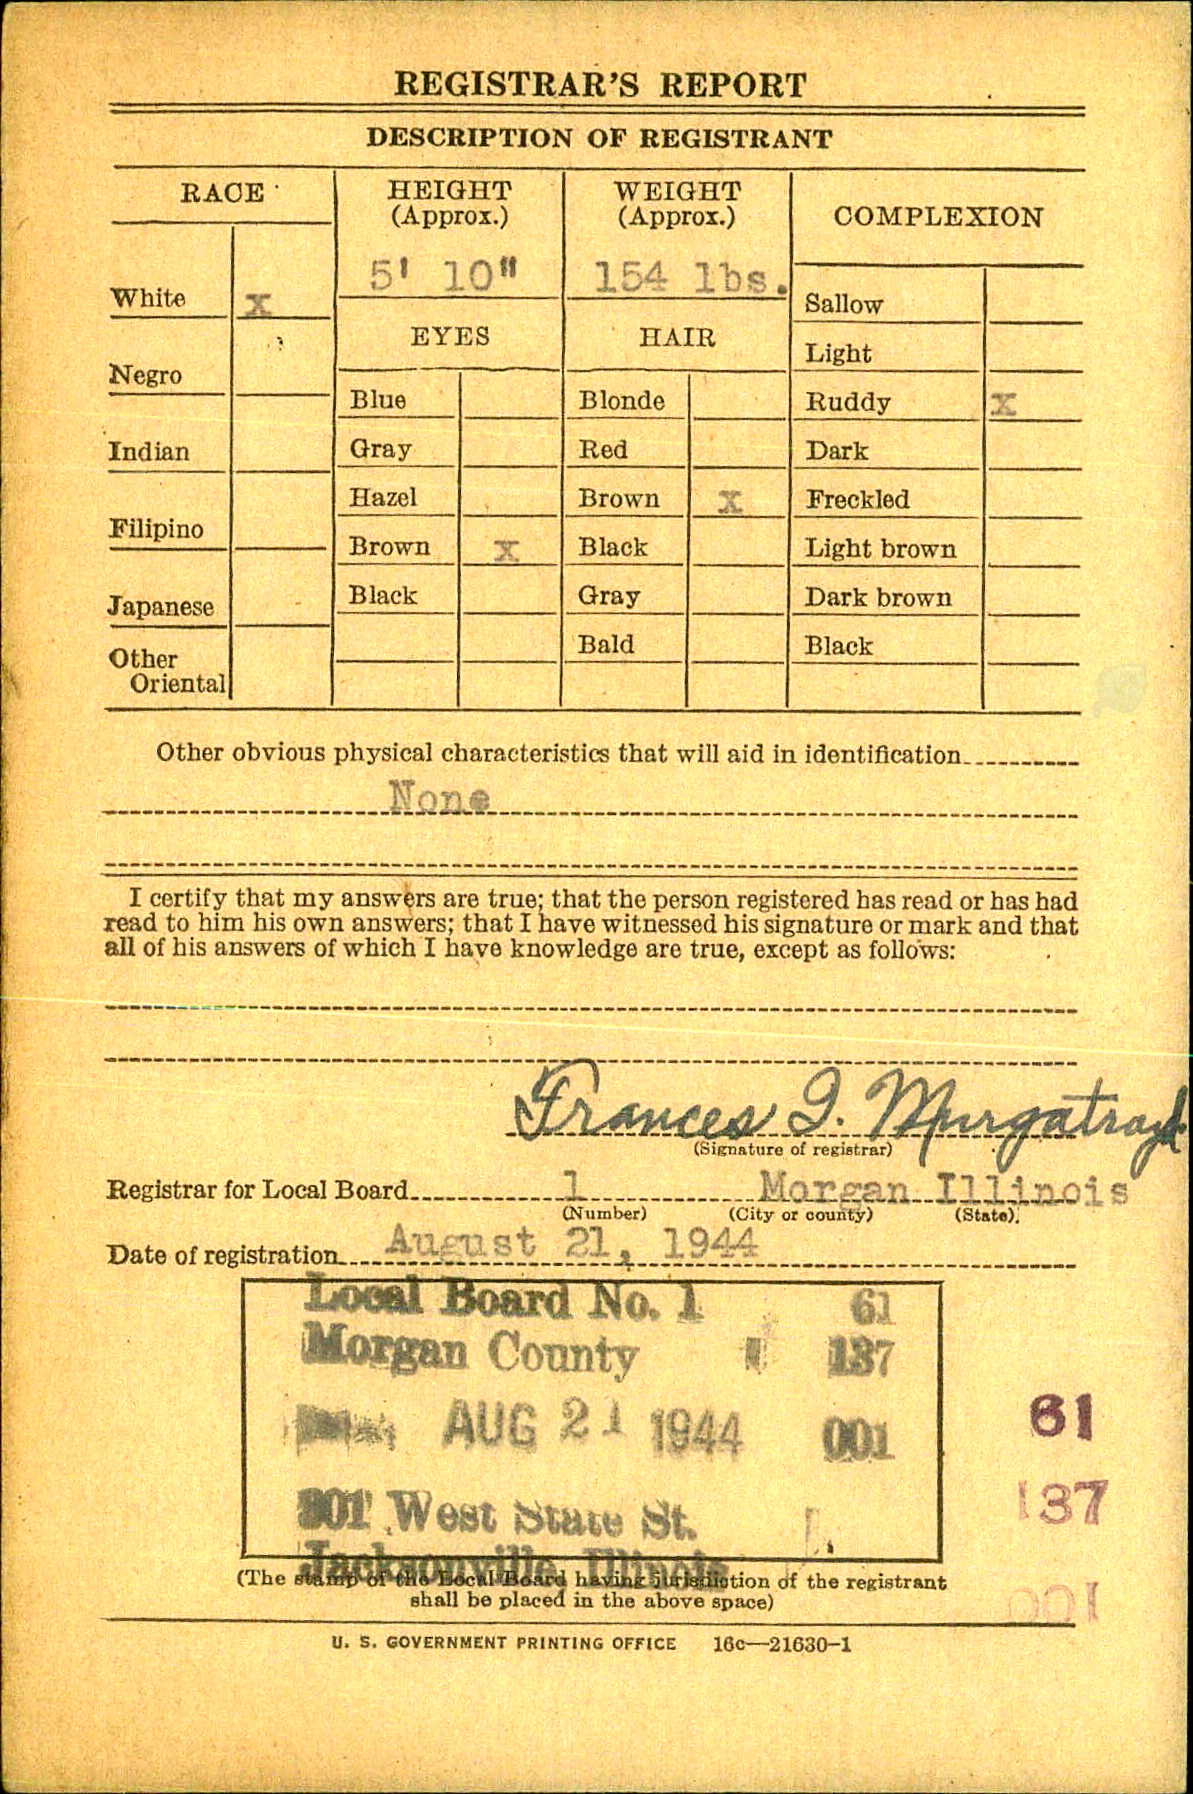 REGISTRAR'S REPORT
DESCRIPTION OF REGISTRANT
RACE
HEIGHT
(Approx.)
WEIGHT
(Approx.)
COMPLEXION
5' 10"
154 lbs.
White x
Negro
Indian
Filipino
Japanese
Other
Oriental
EYES
Blue
Gray
Hazel
Brown x
Black
HAIR
Blonde
Red
Brown x
Black
Gray
Bald
Sallow
Light
Ruddy x
Dark
Freckled
Light brown
Dark brown
Black
Other obvious physical characteristics that will aid in identification
None
I certify that my answers are true; that the person registered has read or has had
read to him his own answers; that I have witnessed his signature or mark and that
all of his answers of which I have knowledge are true, except as follows:
Frances I. Murgatroyd
(Signature of registrar)
Registrar for Local Board 1 Morgan Illinois
(Number) (City or county) (State)
Date of registration August 21, 1944
Local Board No. 1 61
Morgan County 137
AUG 21 1944 001
301 West State St.
Jacksonville, Illinois
61
137
001
(The stamp of the Local Board having jurisdiction of the registrant
shall be placed in the above space)
U. S. GOVERNMENT PRINTING OFFICE 16c—21630-1